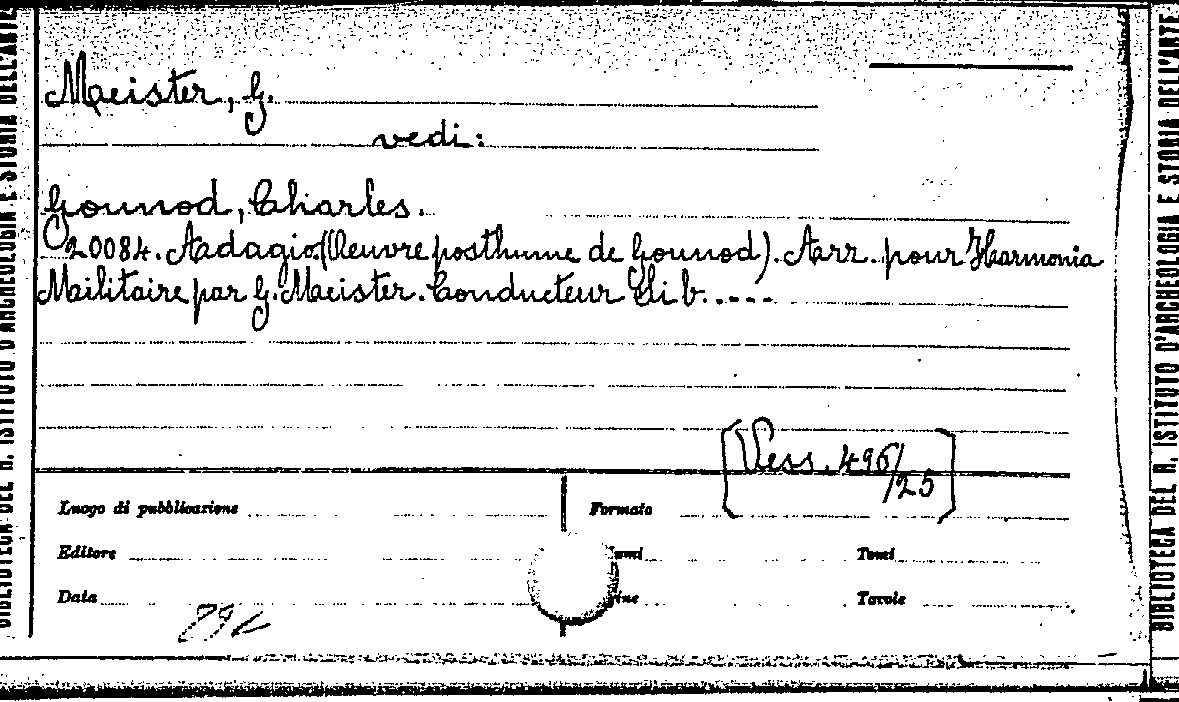 Meister, G.
vedi:
Gounod, Charles.
20084. Adagio (Oeuvre posthume de Gounod). Arr. pour Harmonia
Militaire par G. Meister. Conducteur Si b.....
[Vess. 496/25]
Luogo di pubblicazione
Formato
Editore
Tomi
Data
Tavole
BIBLIOTECA DEL R. ISTITUTO D'ARCHEOLOGIA E STORIA DELL'ARTE
BIBLIOTECA DEL R. ISTITUTO D'ARCHEOLOGIA E STORIA DELL'ARTE